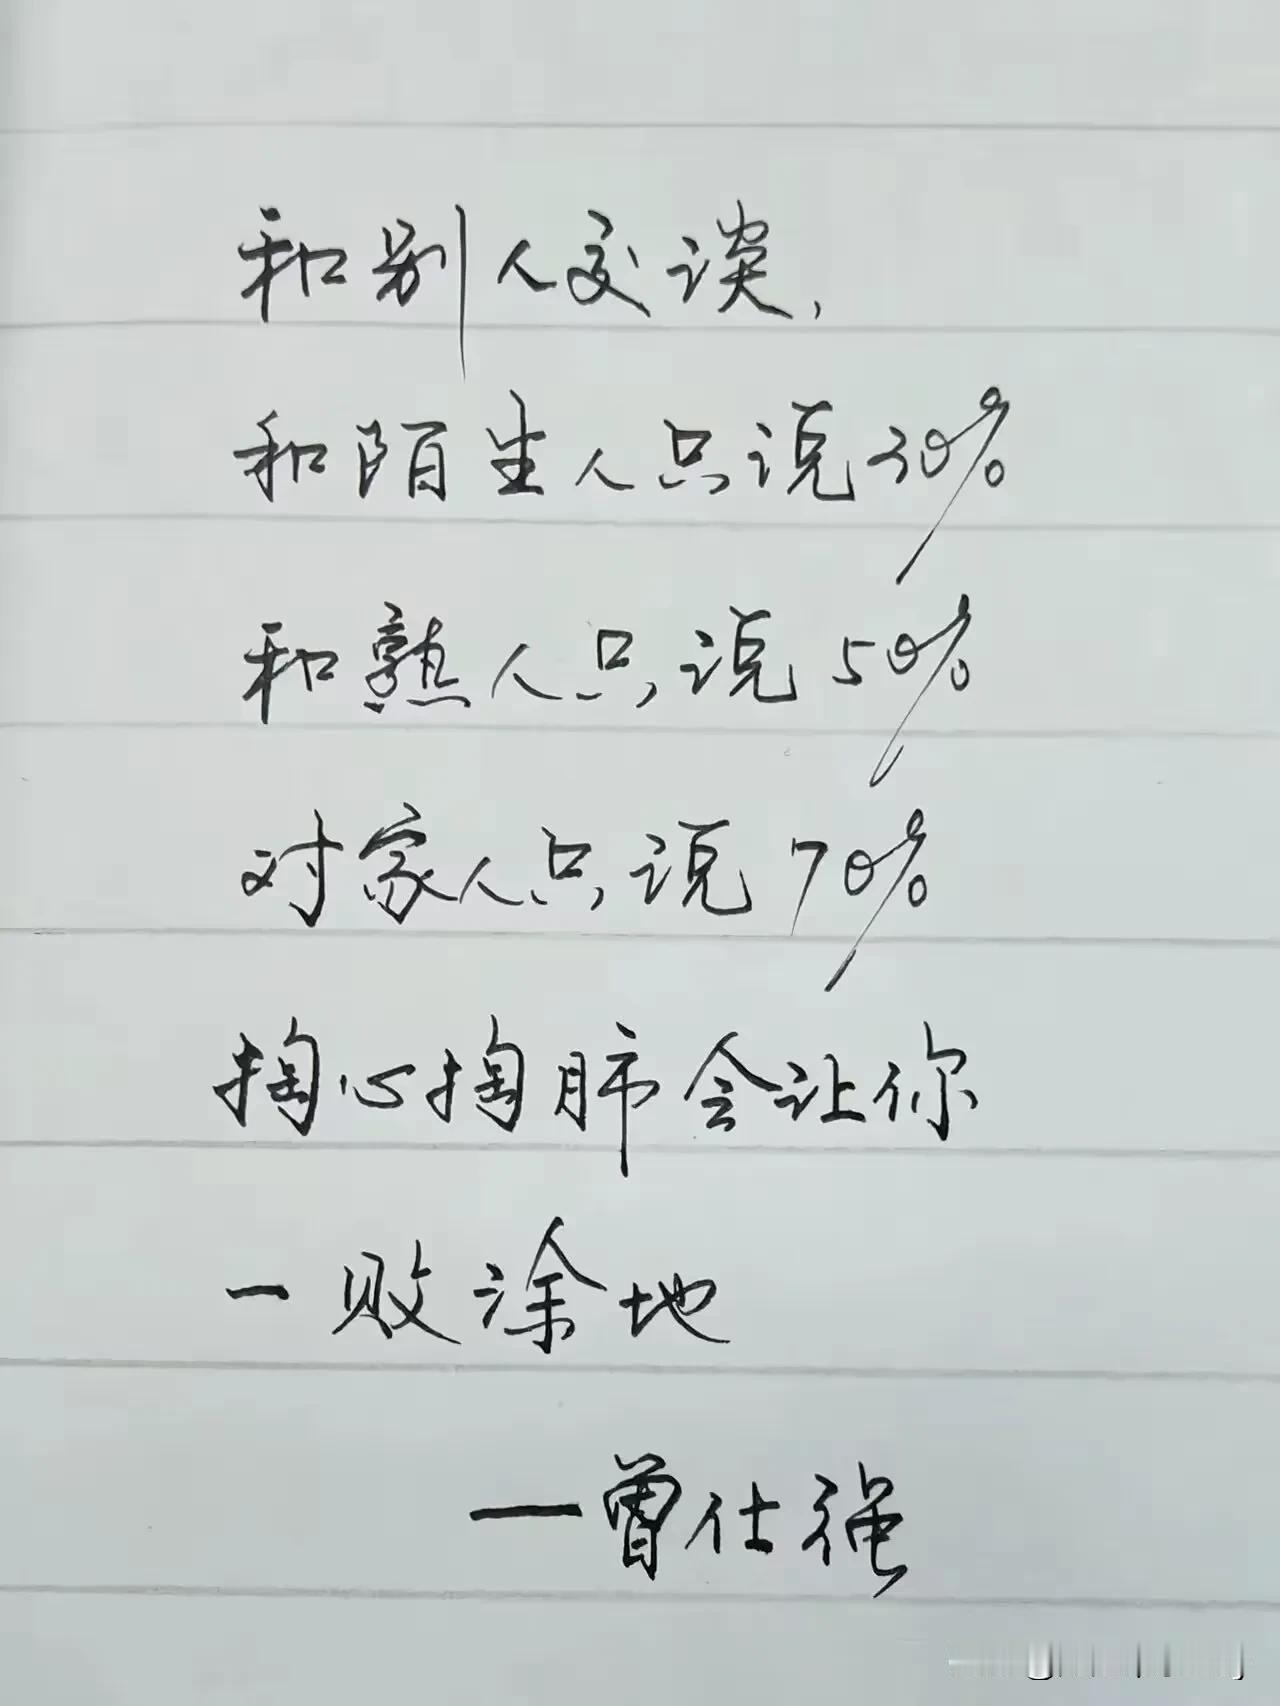 和别人交谈,
和陌生人只说30%
和熟人只说50%
对家人只说70%
掏心掏肺会让你
一败涂地
—曾仕强